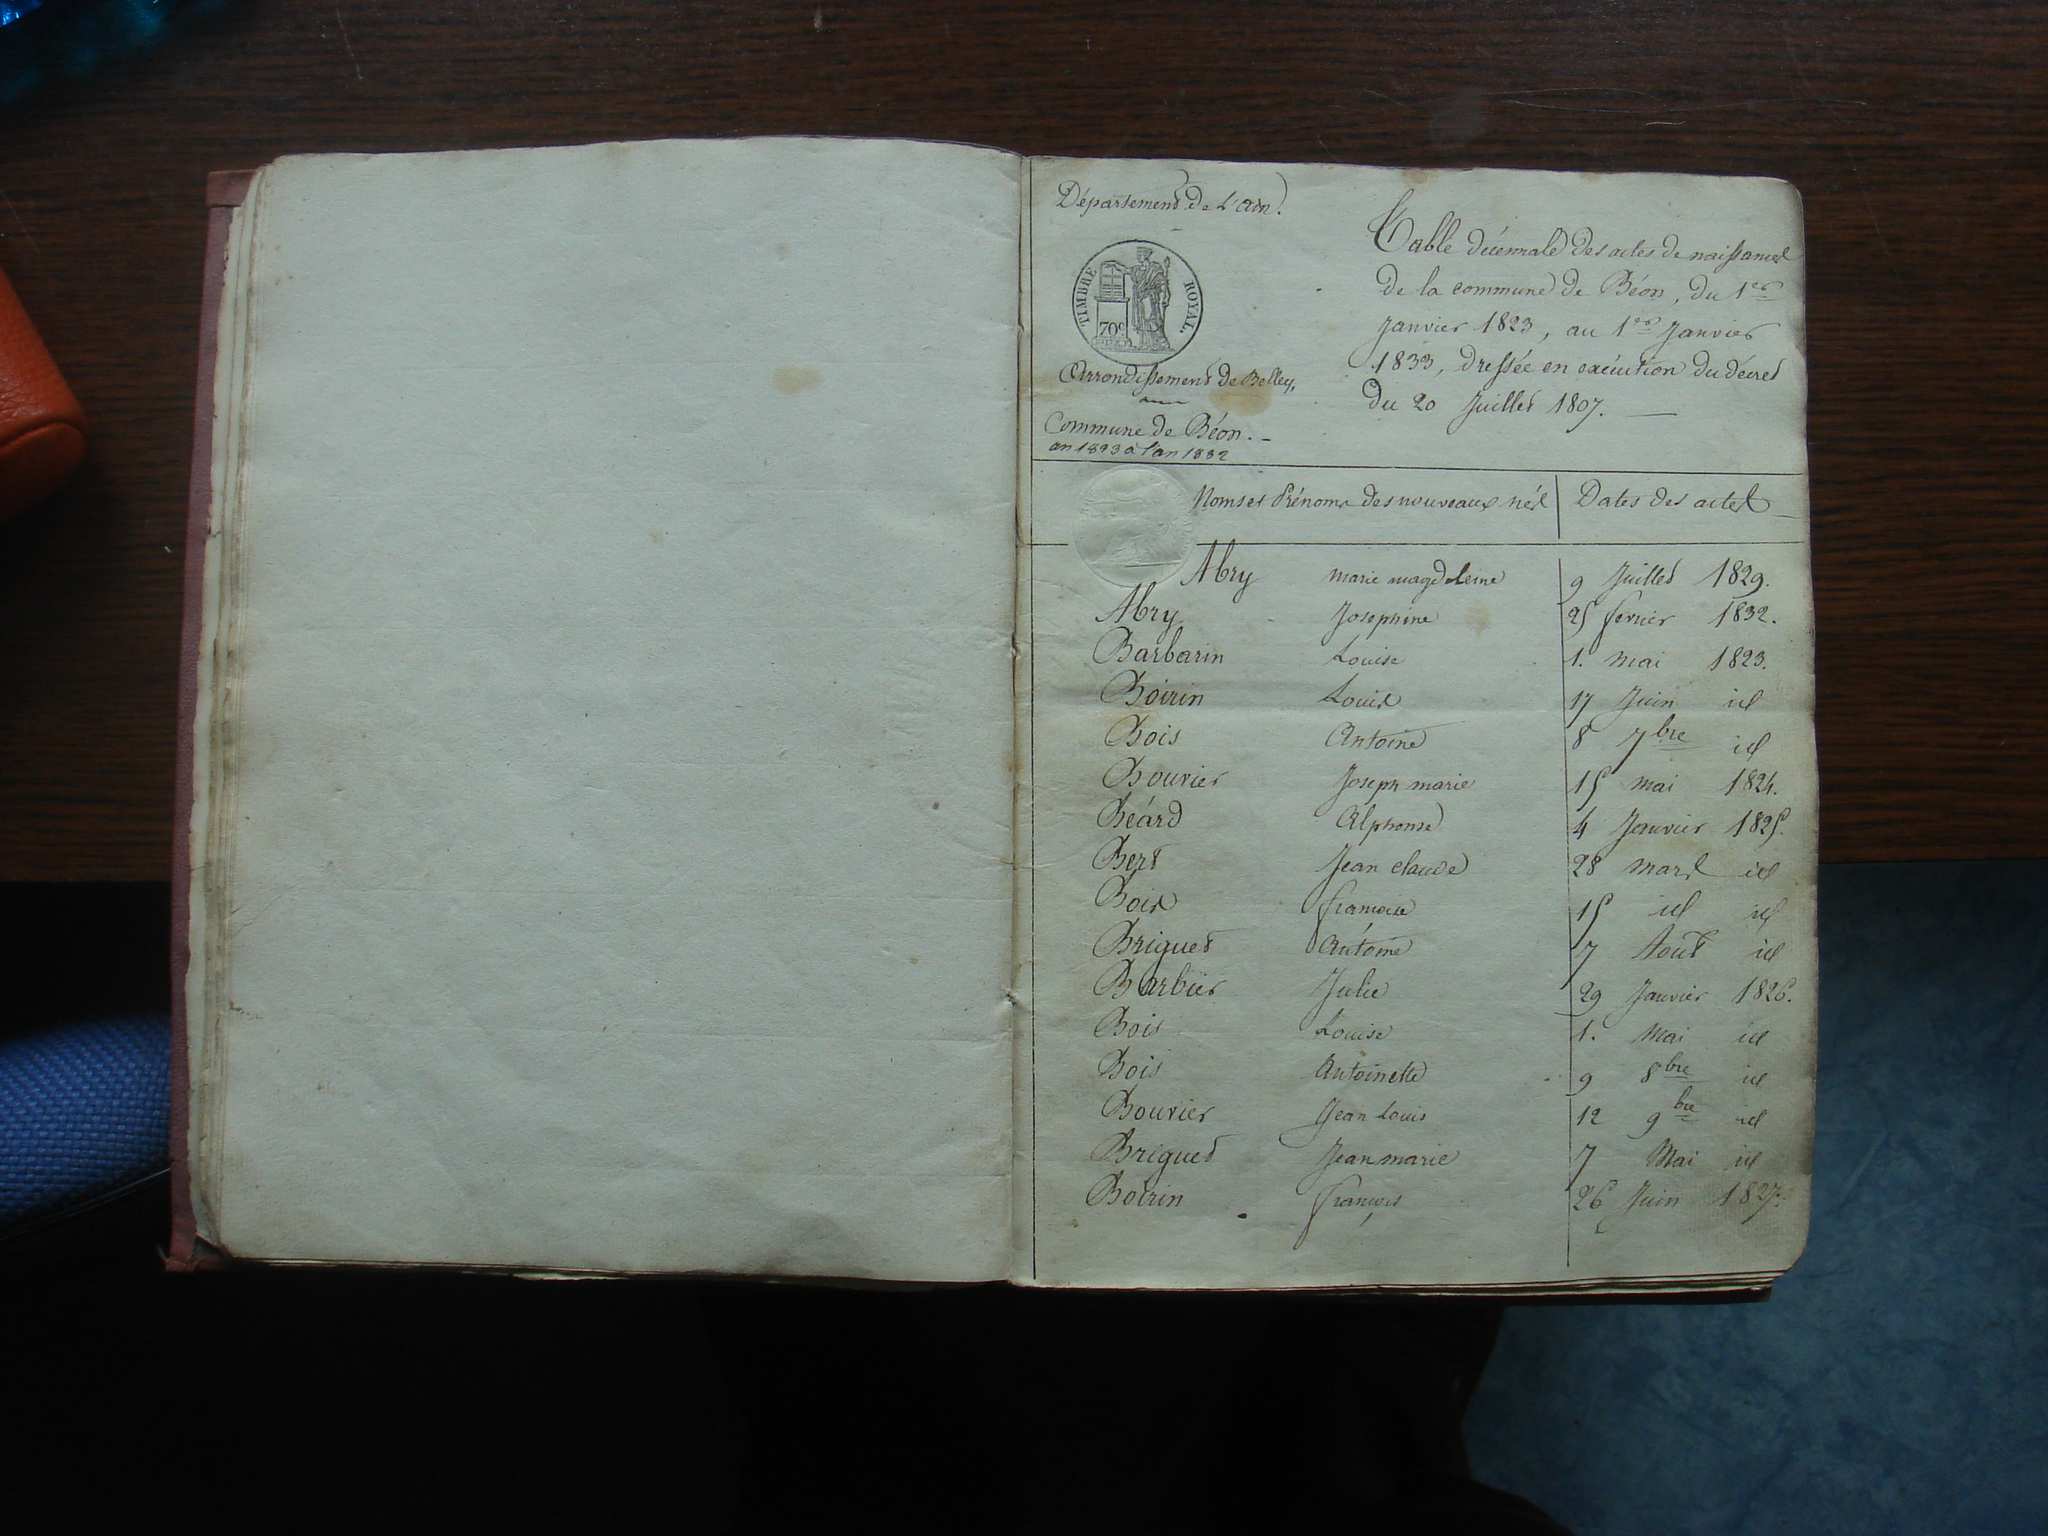 Département de L'ain.
TIMBRE ROYAL.
70c
Arrondissement de Belley,
Commune de Béon. -
an 1823 à l'an 1832
Table décennale des actes de naissances
de la commune de Béon, du 1er
Janvier 1823, au 1er Janvier
1833, dressée en exécution du décret
du 20 Juillet 1807. —
Noms et Prénoms des nouveaux nés | Dates des actes
Abry marie magdeleine 9 Juillet 1829.
Abry Josephine 25 fevrier 1832.
Barbarin Louise 1. mai 1823.
Boirin Louis 17 Juin id
Bois Antoine 8 7bre id
Bouvier Joseph marie 15 mai 1824.
Béard Alphonse 4 Janvier 1825.
Bert Jean claude 28 mars id
Bois francoise 15 id id
Briguet Antoine 7 Aout id
Barbier Julie 29 Janvier 1826.
Bois Louise 1. Mai id
Bois Antoinette 9 8bre id
Bouvier Jean Louis 12 9bre id
Briguet Jean marie 7 Mai id
Boirin françois 26 Juin 1827.